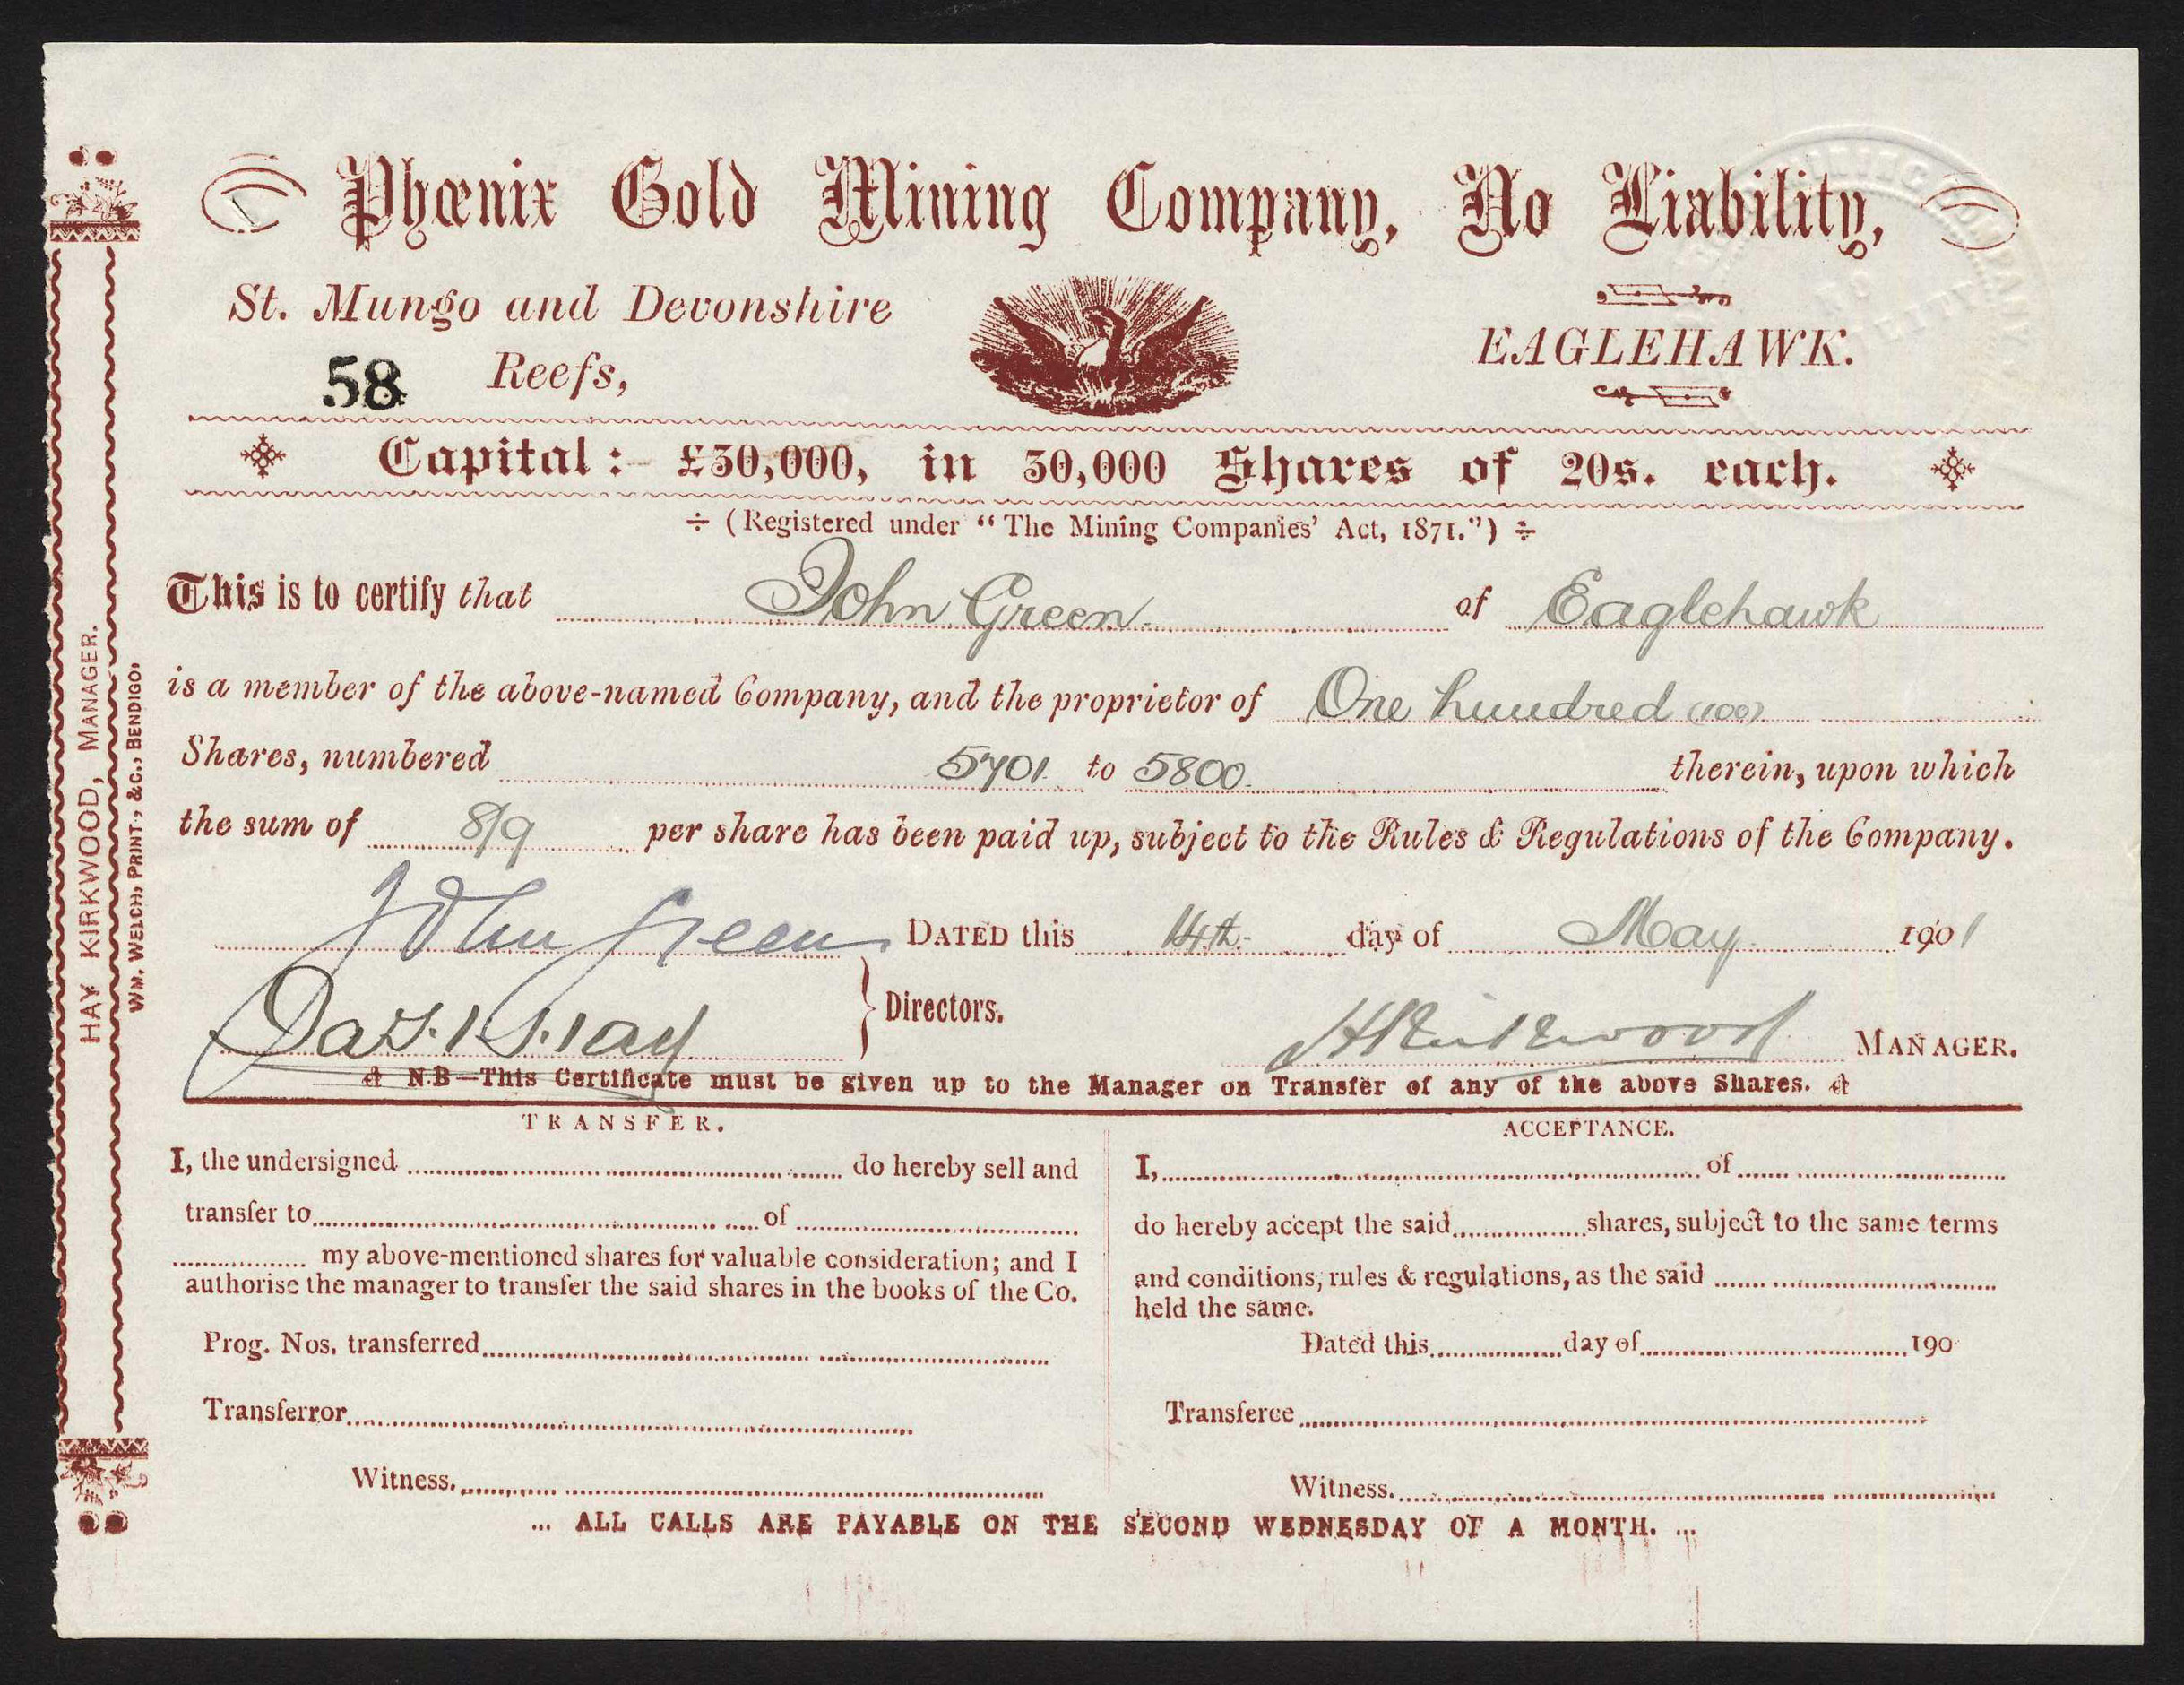 Phœnix Gold Mining Company, No Liability,
St. Mungo and Devonshire
Reefs,
58
EAGLEHAWK.
Capital :- £30,000, in 30,000 Shares of 20s. each.
÷ (Registered under “The Mining Companies’ Act, 1871.”) ÷
This is to certify that John Green of Eaglehawk
is a member of the above-named Company, and the proprietor of One hundred (100)
Shares, numbered 5701 to 5800 therein, upon which
the sum of 8/9 per share has been paid up, subject to the Rules & Regulations of the Company.
John Green DATED this 14th day of May 1901
Directors.
HKirkwood MANAGER.
N.B—This Certificate must be given up to the Manager on Transfer of any of the above Shares.
TRANSFER.
I, the undersigned do hereby sell and
transfer to of
my above-mentioned shares for valuable consideration; and I
authorise the manager to transfer the said shares in the books of the Co.
Prog. Nos. transferred
Transferror
Witness.
ACCEPTANCE.
I, of
do hereby accept the said shares, subject to the same terms
and conditions, rules & regulations, as the said
held the same.
Dated this day of 190
Transferee
Witness.
... ALL CALLS ARE PAYABLE ON THE SECOND WEDNESDAY OF A MONTH. ...
HAY KIRKWOOD, MANAGER.
WM. WELCH, PRINT., &C., BENDIGO,